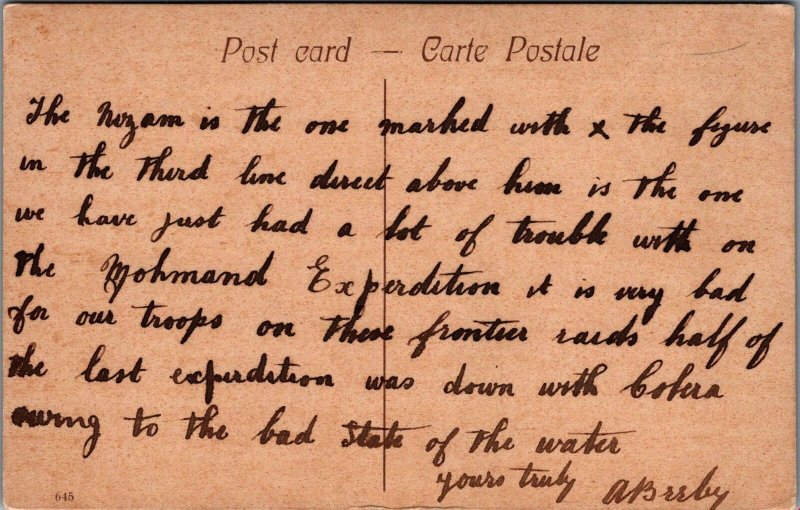 Post card — Carte Postale
The Nozam is the one marked with x the figure
in the third line direct above him is the one
we have just had a lot of trouble with on
the Mohmand Experdition it is very bad
for our troops on these frontier raids half of
the last experdition was down with Colera
owing to the bad State of the water
yours truly ABeeby
645